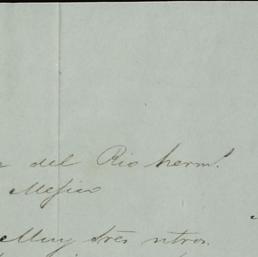 del Rio herm.ˢ
Mejico
Muy Srés ntros.